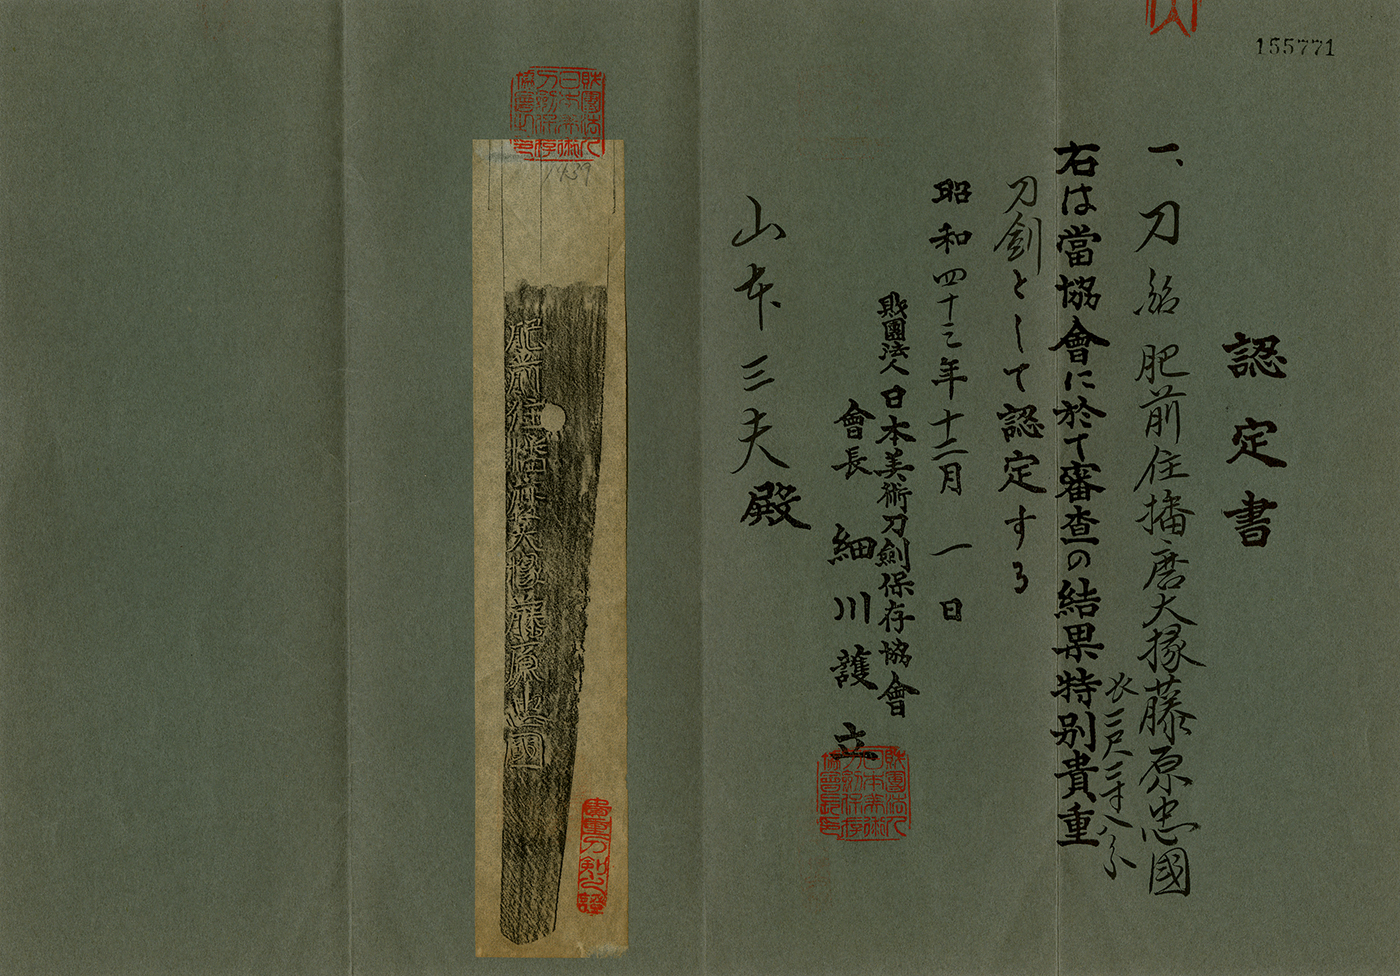 155771
認定書
一、刀 銘 肥前住播磨大掾藤原忠國
長二尺三寸八分
右は當協會に於て審査の結果特別貴重
刀劍として認定する
昭和四十三年十二月一日
財團法人日本美術刀劍保存協會
會長 細川護立
財團法人日本美術刀劍保存協會長印
山本三夫殿
財團法人日本美術刀劍保存協會之印
肥前住播磨大掾藤原忠國
貴重刀剣之證